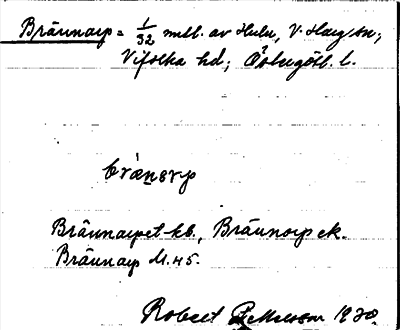 Brännarp = 1/32 mtl. av Hulu, V. Harg sn,
Vifolka hd; Östergötl. l.
brænarp
Brännarpet kb., Bränorp ek.
Brännarp M.45.
Robert Pettersson 1930